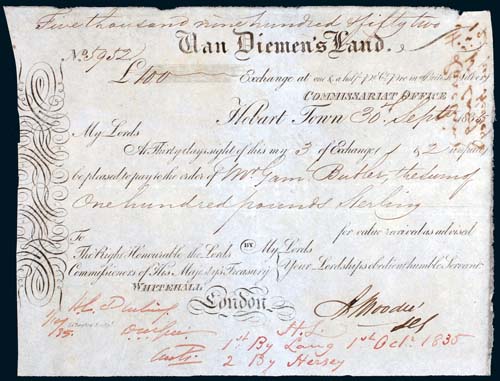 Five thousand nine hundred & fifty two
Van Diemen's Land.
No. 5952
£100 Exchange at one & a half p Ct. Prem British Silver
COMMISSARIAT OFFICE
Hobart Town 30th Septr 1835
My Lords
At Thirty days sight of this my 3 of Exchange 1 & 2 unpaid
be pleased to pay to the order of Mr Gam Butler, the sum of
One hundred pounds Sterling
for value received as advised
To
The Right Honourable the Lords BY My Lords
Commissioners of His Majesty's Treasury Your Lordships obedient humble Servant
WHITEHALL
London
A Moodie
H. L.
1st By Lang 1st Octr. 1835
2 By Hersey